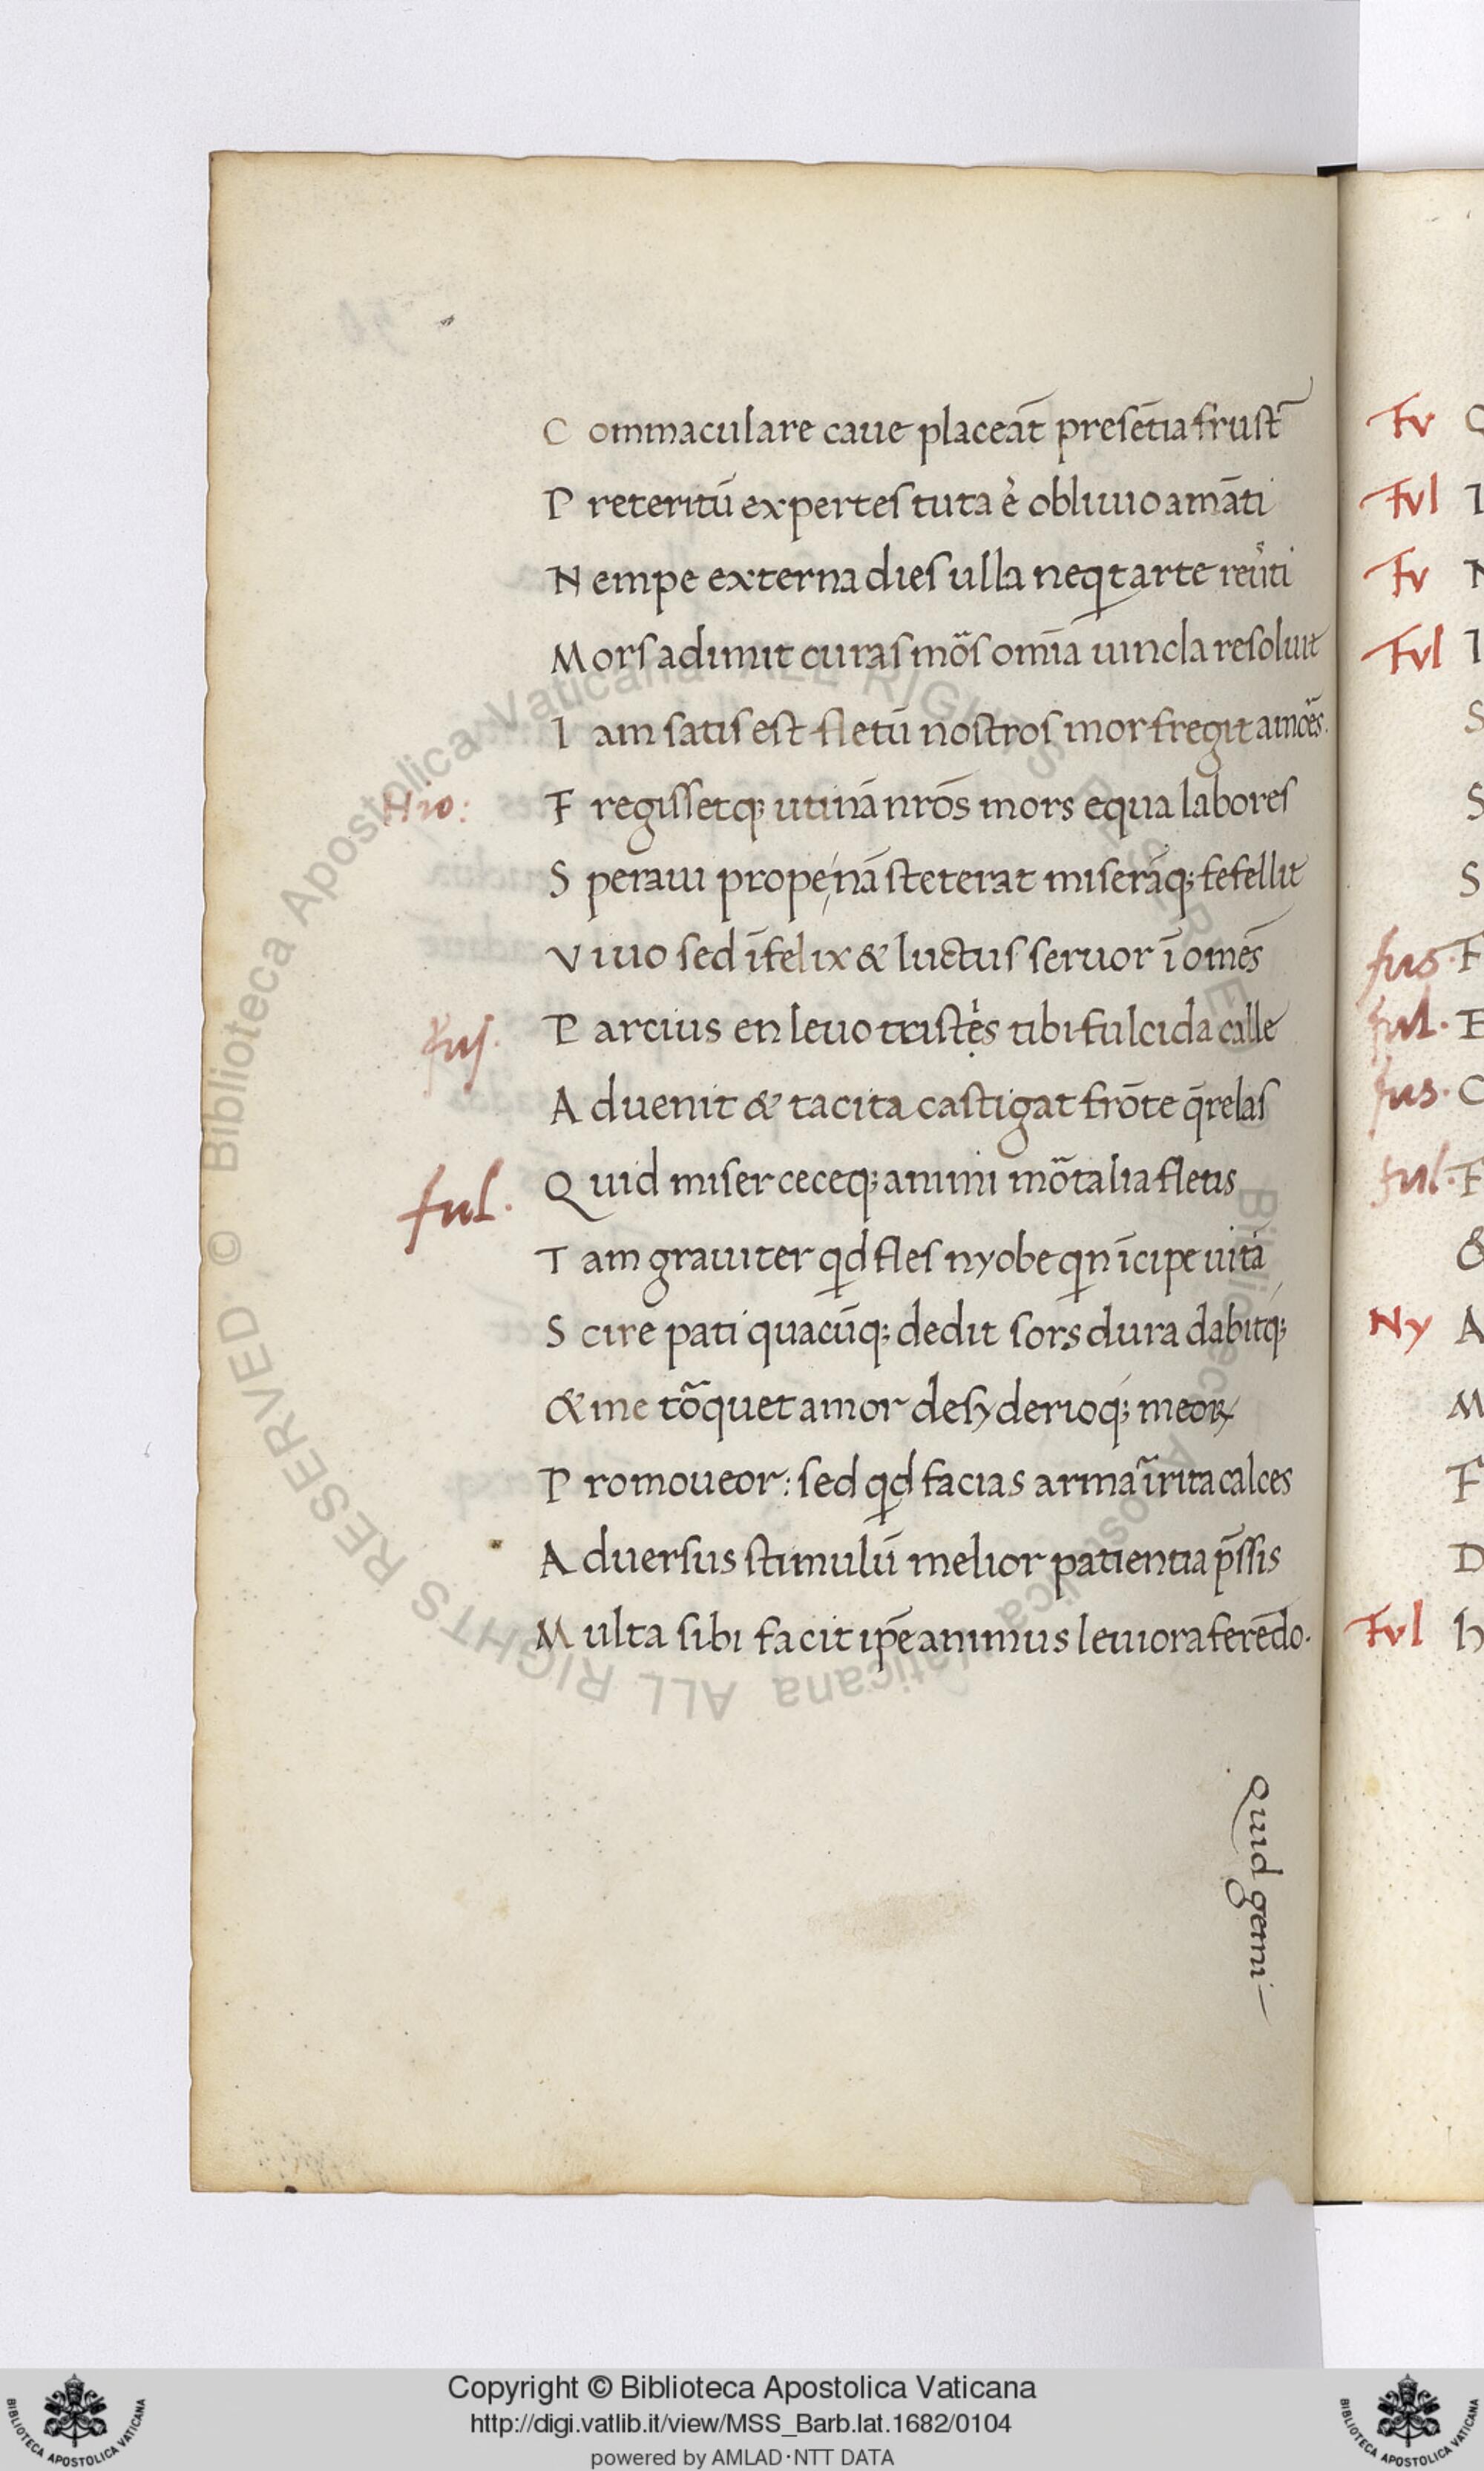 C ommaculare caue placeāt presētia frust̄
P reteritū expertes tuta è obliuio amāti
N empe externa dies ulla neq̇t arte reūti
M ors adimit curas mõs omīa uincla resoluit
I am satis est fletū nostros mor fregit amoẽs.
Nio: F regissetq; utinā nrōs mors equa labores
S peraui prope, nā steterat miserāq; fefellit
V iuo sed īfelix & luctus seruor ī omēs
fuſ. P arcius en leuo tristẹs tibi fulcida calle
A duenit & tacita castigat frōte q̄relas
ful. Q uid miser ceceq; animi mõtalia fletis
T am grauiter qd fles nyobe qn īcipe uitā
S cire pati quacūq; dedit sors dura dabitq;
& me tõquet amor desyderioq; meoꝝ
P romoueor: sed qd facias arma īrita calces
A duersus stimulū melior patientia p̄ssis
M ulta sibi facit ipē animus leuiora ferēdo.
Quid gemi
Fv
Fvl
Fv
Fvl
fus.
ful.
fus.
ful.
Ny
Fvl
© Biblioteca Apostolica Vaticana ALL RIGHTS RESERVED
© Biblioteca Apostolica Vaticana ALL RIGHTS RESERVED
Copyright © Biblioteca Apostolica Vaticana
http://digi.vatlib.it/view/MSS_Barb.lat.1682/0104
powered by AMLAD·NTT DATA
BIBLIOTECA APOSTOLICA VATICANA
BIBLIOTECA APOSTOLICA VATICANA